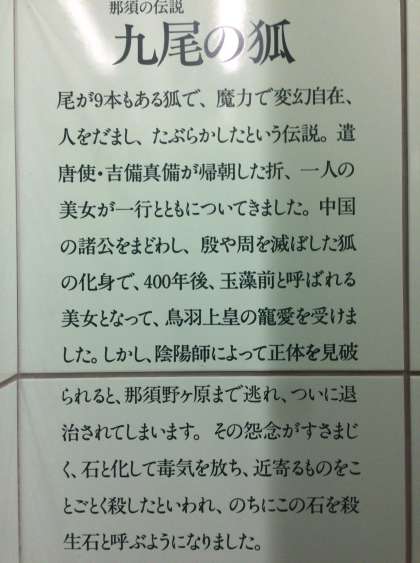 那須の伝説
九尾の狐
尾が9本もある狐で、魔力で変幻自在、
人をだまし、たぶらかしたという伝説。遣
唐使・吉備真備が帰朝した折、一人の
美女が一行とともについてきました。中国
の諸公をまどわし、殷や周を滅ぼした狐
の化身で、400年後、玉藻前と呼ばれる
美女となって、鳥羽上皇の寵愛を受けま
した。しかし、陰陽師によって正体を見破
られると、那須野ヶ原まで逃れ、ついに退
治されてしまいます。その怨念がすさまじ
く、石と化して毒気を放ち、近寄るものをこ
とごとく殺したといわれ、のちにこの石を殺
生石と呼ぶようになりました。